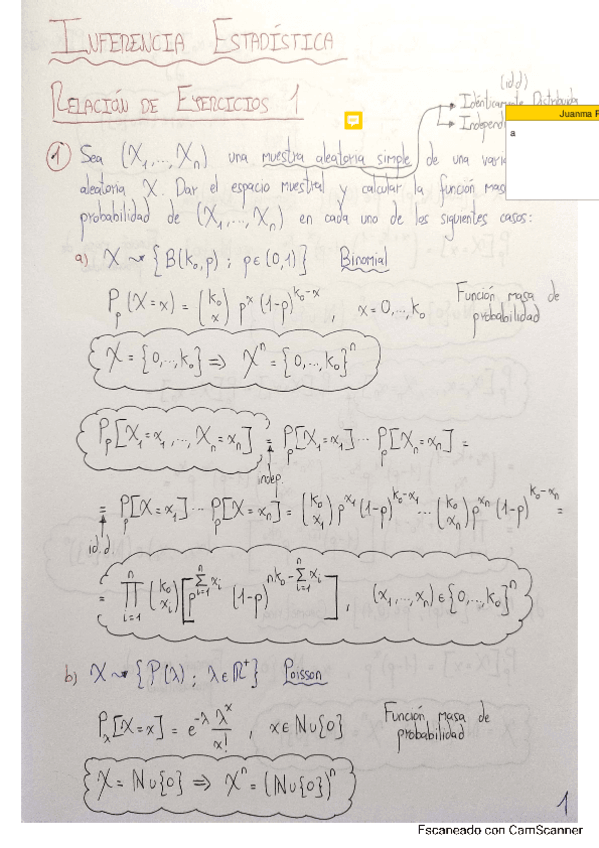 INFERENCIA ESTADÍSTICA
RELACIÓN DE EJERCICIOS 1
(idd)
Idénticamente Distribuida
Independi
Juanma P
a
1) Sea (X₁,...,Xₙ) una muestra aleatoria simple de una vari
aleatoria X. Dar el espacio muestral y calcular la función mas
probabilidad de (X₁,...,Xₙ) en cada uno de los siguientes casos:
a) X ⇝ {B(k₀,p) ; p∈(0,1)} Binomial
Pₚ(X=x) = (k₀ x) pˣ (1-p)^(k₀-x) , x=0,...,k₀ Función masa de
probabilidad
X = {0,...,k₀} ⇒ Xⁿ = {0,...,k₀}ⁿ
Pₚ[X₁=x₁,...,Xₙ=xₙ] = Pₚ[X₁=x₁]...Pₚ[Xₙ=xₙ] =
indep.
= Pₚ[X=x₁]...Pₚ[X=xₙ] = (k₀ x₁) p^x₁ (1-p)^(k₀-x₁) ... (k₀ xₙ) p^xₙ (1-p)^(k₀-xₙ) =
id.d.
= ∏ᵢ₌₁ⁿ (k₀ xᵢ) [p^(∑ᵢ₌₁ⁿ xᵢ) (1-p)^(nk₀-∑ᵢ₌₁ⁿ xᵢ)] , (x₁,...,xₙ)∈{0,...,k₀}ⁿ
b) X ⇝ {P(λ) ; λ∈ℝ⁺} Poisson
P_λ[X=x] = e^(-λ) λˣ/x! , x∈ℕ∪{0} Función masa de
probabilidad
X = ℕ∪{0} ⇒ Xⁿ = (ℕ∪{0})ⁿ
1
Escaneado con CamScanner